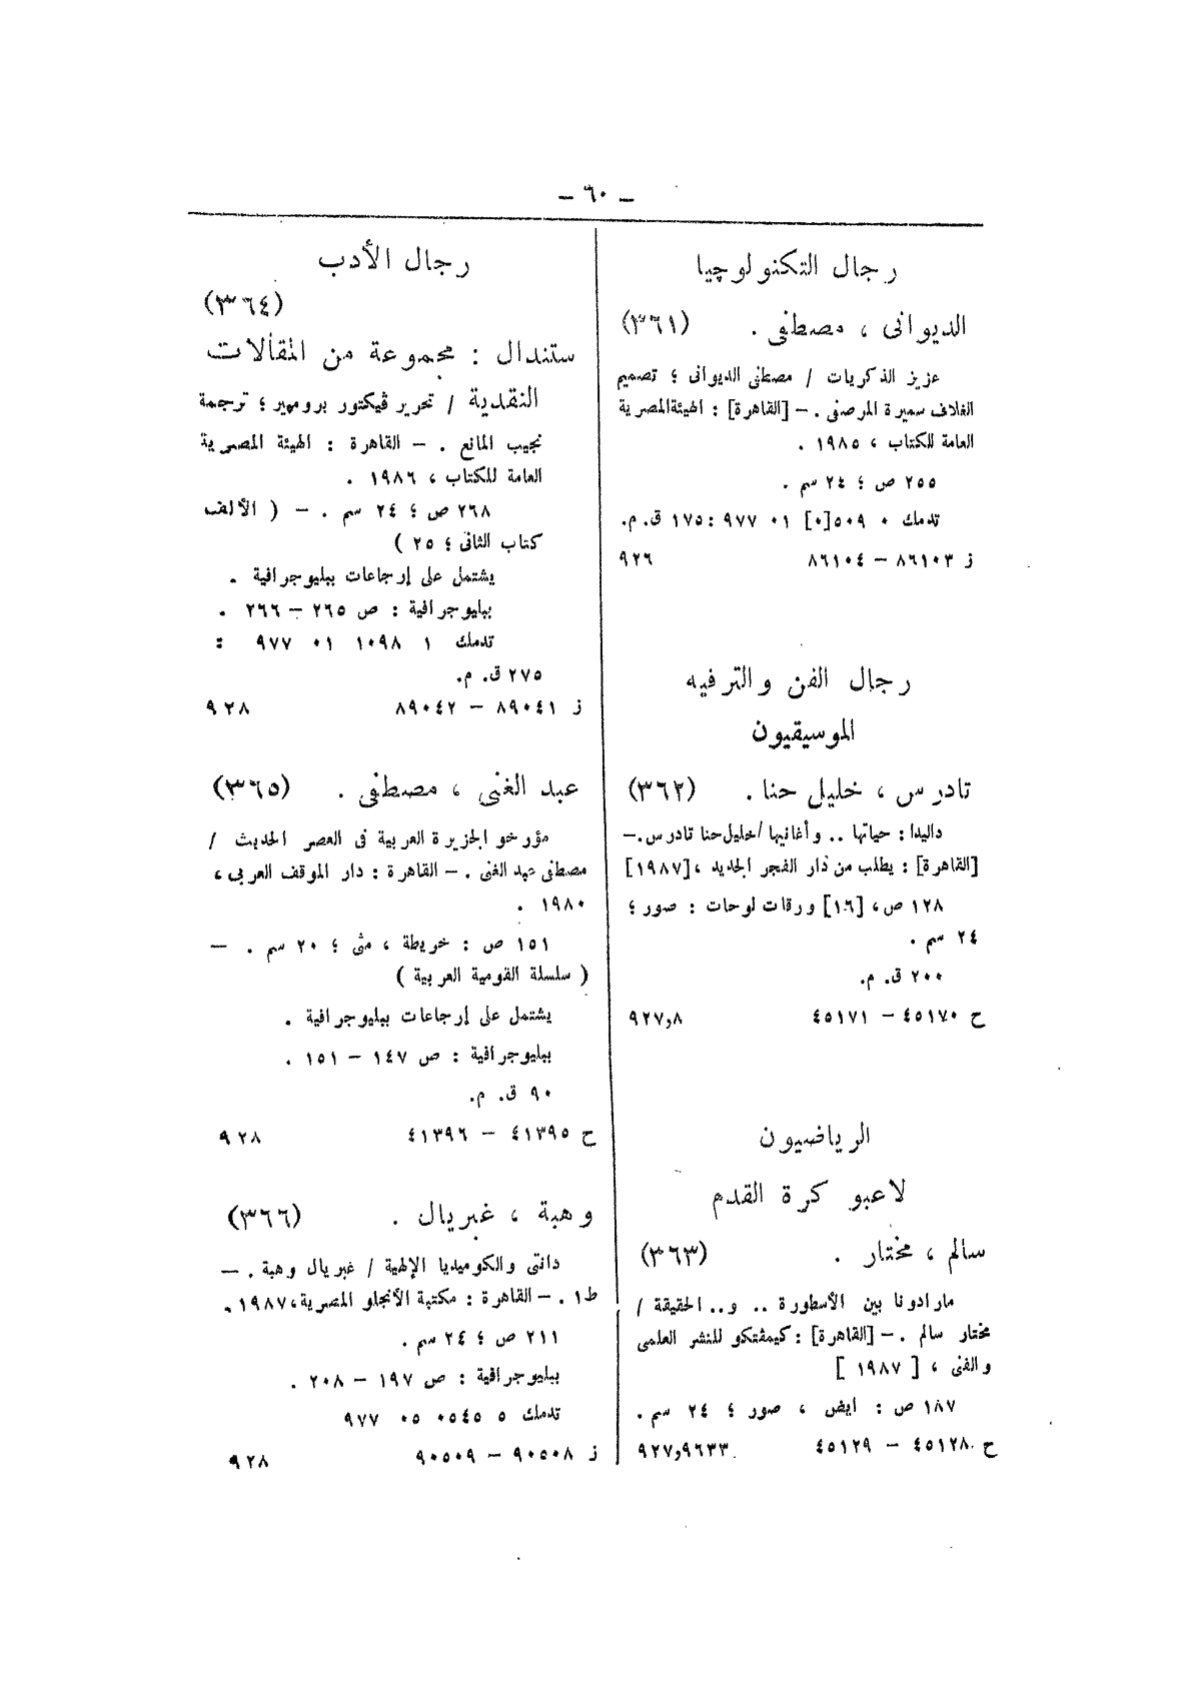 – ٦٠ –
رجال التكنولوچيا
الديوانى ، مصطفى . (٣٦١)
عزيز الذكريات / مصطفى الديوانى ؛ تصميم
الغلاف سميرة المرصفى . – [القاهرة] : الهيئة المصرية
العامة للكتاب ، ١٩٨٥ .
٢٥٥ ص ؛ ٢٤ سم .
تدمك ٠ ٥٠٩[٠] ٠١ ٩٧٧ : ١٧٥ ق. م.
ز ٨٦١٠٣ – ٨٦١٠٤ ٩٢٦
رجال الفن والترفيه
الموسيقيون
تادرس ، خليل حنا . (٣٦٢)
داليدا : حياتها .. وأغانيها / خليل حنا تادرس . –
[القاهرة] : يطلب من دار الفجر الجديد ، [١٩٨٧]
١٢٨ ص ، [١٦] ورقات لوحات : صور ؛
٢٤ سم .
٢٠٠ ق. م.
ح ٤٥١٧٠ – ٤٥١٧١ ٩٢٧,٨
الرياضيون
لاعبو كرة القدم
سالم ، مختار . (٣٦٣)
مارادونا بين الأسطورة .. و.. الحقيقة /
مختار سالم . – [القاهرة] : كيمفتكو للنشر العلمى
والفنى ، [ ١٩٨٧ ]
١٨٧ ص : ايض ، صور ؛ ٢٤ سم .
ح ٤٥١٢٨ – ٤٥١٢٩ ٩٢٧,٩٦٣٣
رجال الأدب
(٣٦٤)
ستندال : مجموعة من المقالات
النقدية / تحرير ڤيكتور برومبير ؛ ترجمة
نجيب المانع . – القاهرة : الهيئة المصرية
العامة للكتاب ، ١٩٨٦ .
٢٦٨ ص ؛ ٢٤ سم . – ( الألف
كتاب الثانى ؛ ٢٥ )
يشتمل على إرجاعات ببليوجرافية .
ببليوجرافية : ص ٢٦٥ – ٢٦٦ .
تدمك ١ ١٠٩٨ ٠١ ٩٧٧ :
٢٧٥ ق. م.
ز ٨٩٠٤١ – ٨٩٠٤٢ ٩٢٨
عبد الغنى ، مصطفى . (٣٦٥)
مؤرخو الجزيرة العربية فى العصر الحديث /
مصطفى عبد الغنى . – القاهرة : دار الموقف العربى ،
١٩٨٠ .
١٥١ ص : خريطة ، مثى ؛ ٢٠ سم . –
( سلسلة القومية العربية )
يشتمل على إرجاعات ببليوجرافية .
ببليوجرافية : ص ١٤٧ – ١٥١ .
٩٠ ق. م.
ح ٤١٣٩٥ – ٤١٣٩٦ ٩٢٨
وهبة ، غبريال . (٣٦٦)
دانتى والكوميديا الإلهية / غبريال وهبة . –
ط١ . – القاهرة : مكتبة الأنجلو المصرية ، ١٩٨٧ .
٢١١ ص ؛ ٢٤ سم .
ببليوجرافية : ص ١٩٧ – ٢٠٨ .
تدمك ٥ ٠٥٤٥ ٠٥ ٩٧٧
ز ٩٠٥٠٨ – ٩٠٥٠٩ ٩٢٨